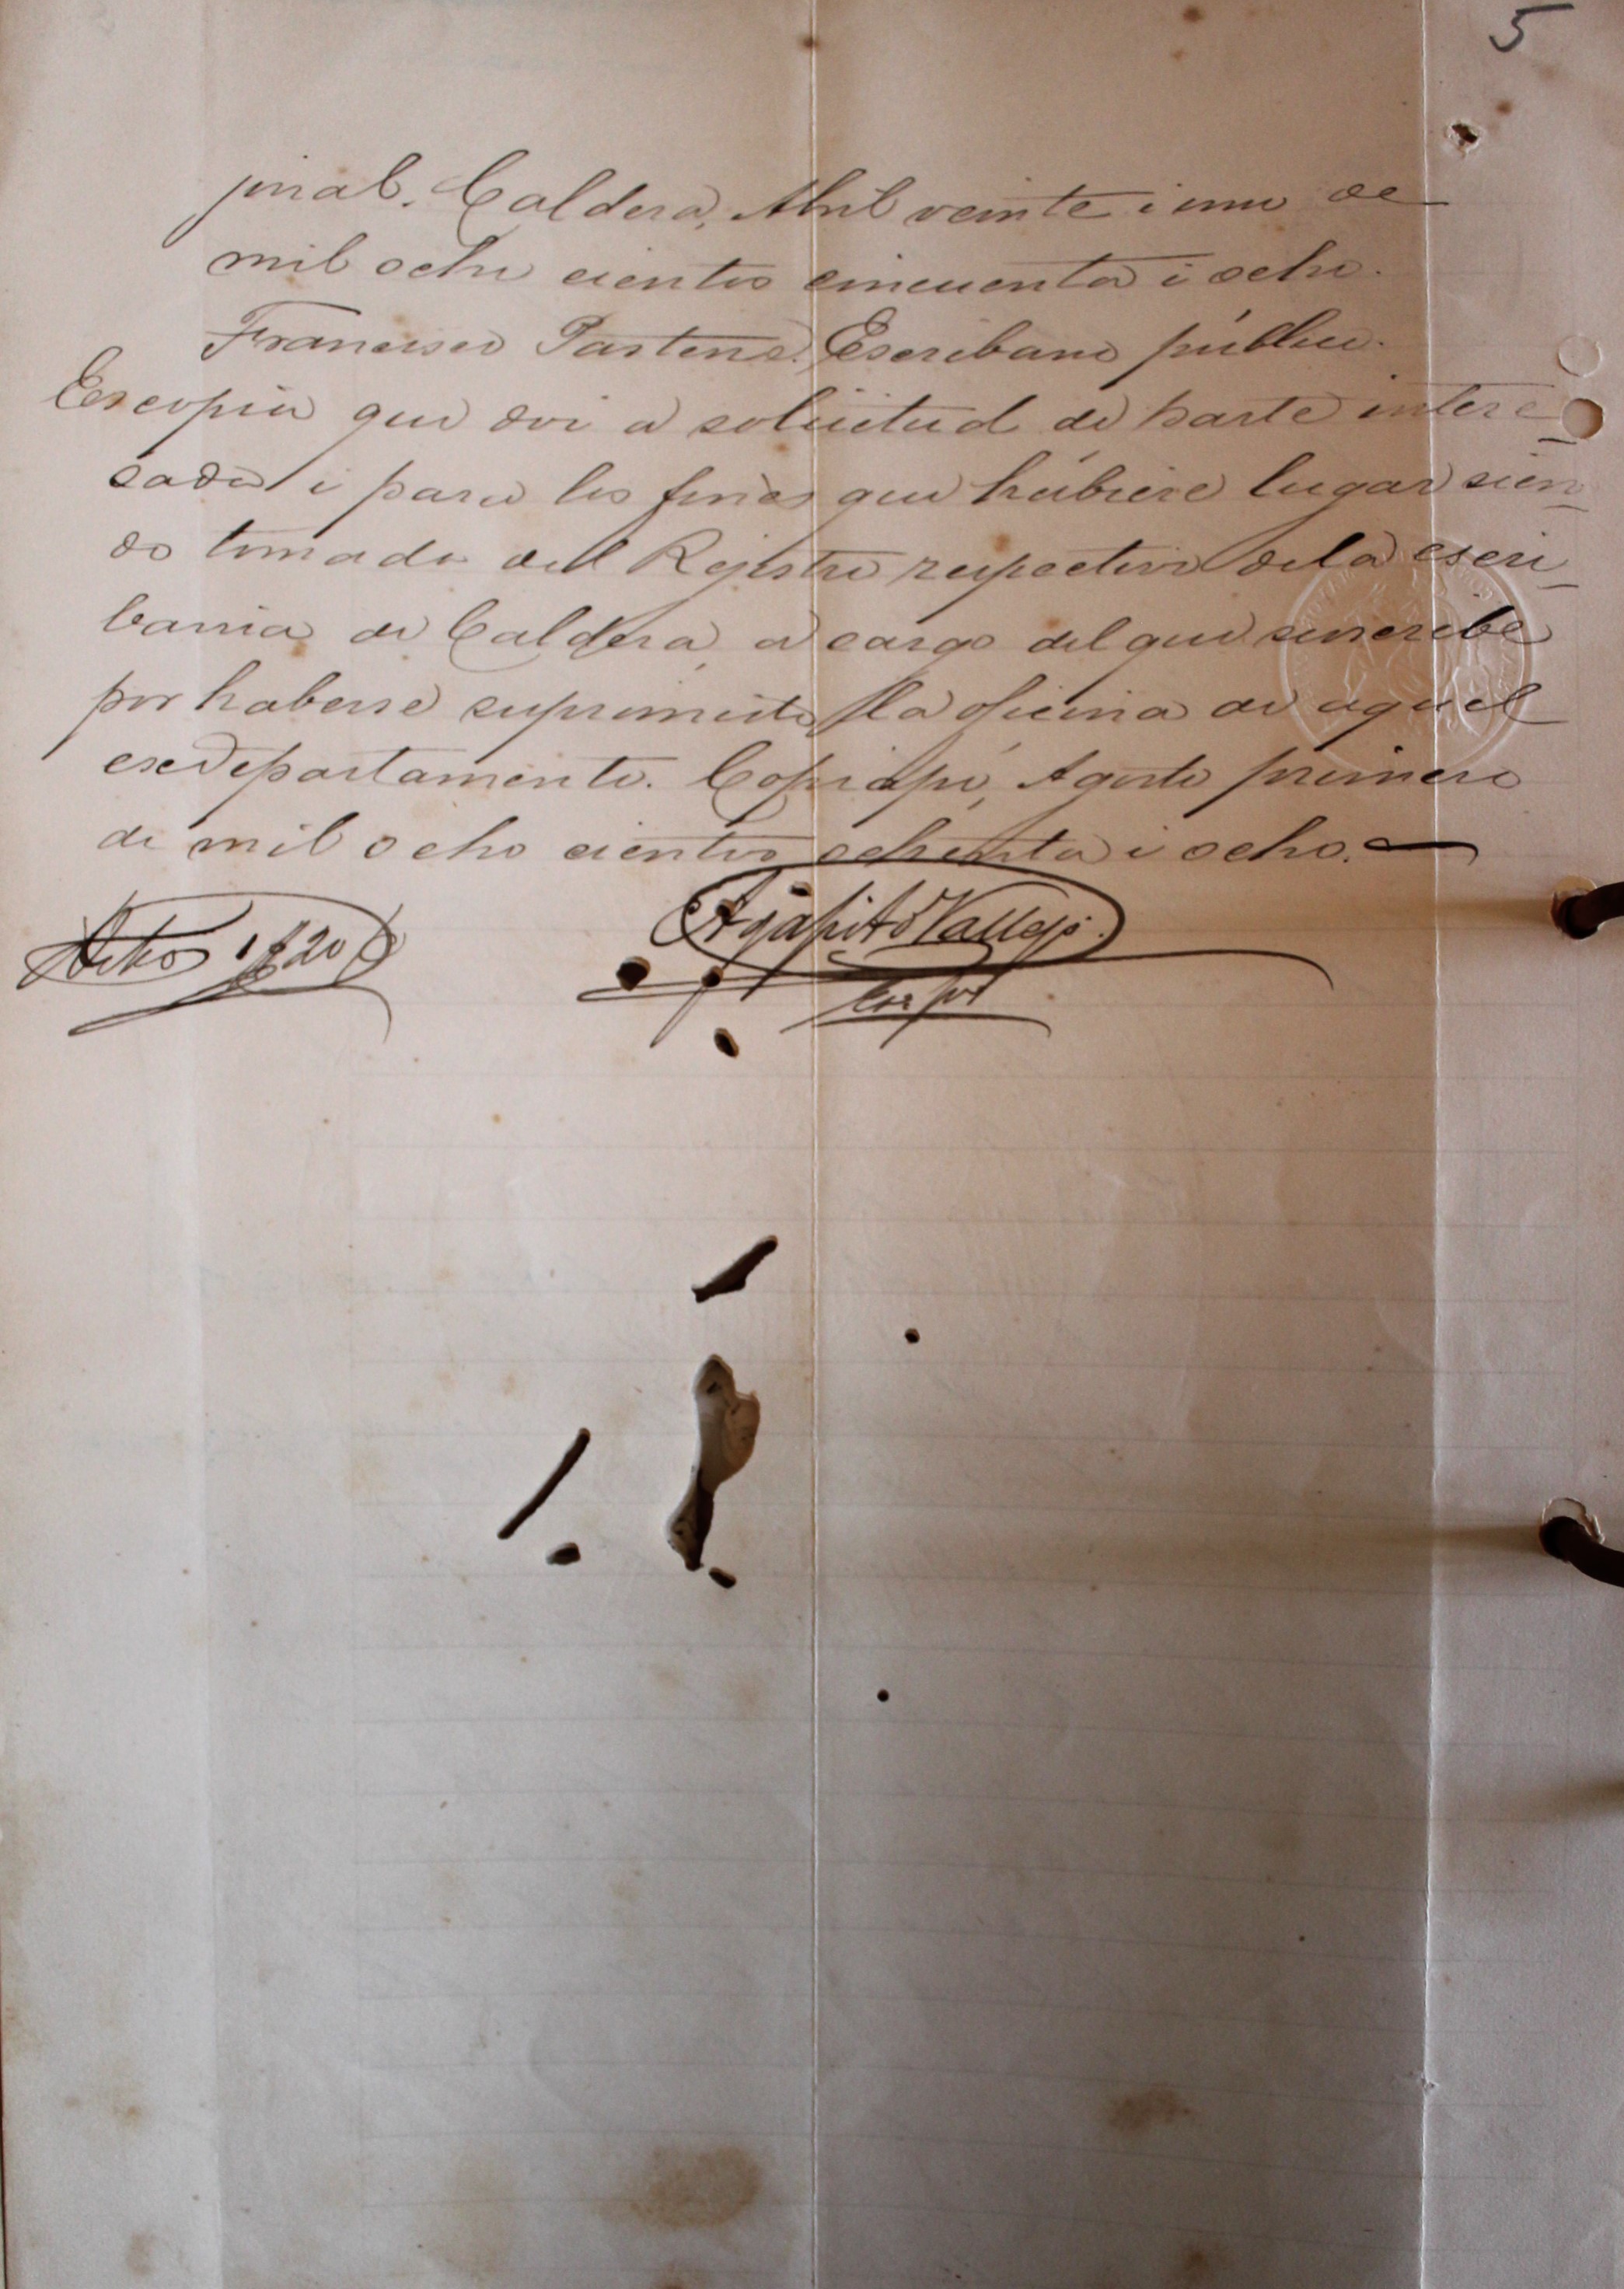 5
jinal. Caldera, Abril veinte i uno de
mil ocho cientos cincuenta i ocho.
Francisco Pastene. Escribano público.
Es copia que doi a solicitud de parte intere
sada i para los fines que hubiere lugar sien
do tomada del Rejistro respectivo de la escri
bania de Caldera, a cargo del que suscribe
por haberse suprimido la oficina de aquel
exedepartamento. Copiapó, Agosto primero
de mil ocho cientos ochenta i ocho.
Agapito Vallejo.